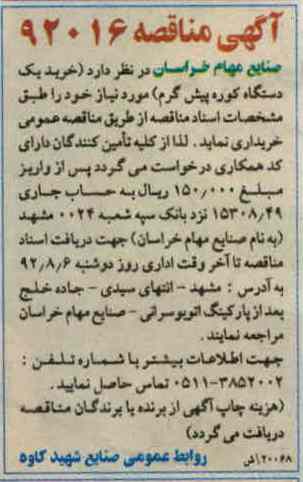 آگهی مناقصه ۹۲۰۱۶
صنایع مهام خراسان در نظر دارد (خرید یک
دستگاه کوره پیش گرم) مورد نیاز خود را طبق
مشخصات اسناد مناقصه از طریق مناقصه عمومی
خریداری نماید . لذا از کلیه تأمین کنندگان دارای
کد همکاری درخواست می گردد پس از واریز
مبلغ ۱۵۰٫۰۰۰ ریال به حساب جاری
۱۵۳۰۸٫۴۹ نزد بانک سپه شعبه ۰۰۲۴ مشهد
(به نام صنایع مهام خراسان) جهت دریافت اسناد
مناقصه تا آخر وقت اداری روز دوشنبه ۹۲٫۸٫۶
به آدرس : مشهد - انتهای سیدی - جاده خلج
بعد از پارکینگ اتوبوسرانی - صنایع مهام خراسان
مراجعه نمایند .
جهت اطلاعات بیشتر با شماره تلفن :
۳۸۵۲۰۰۲-۰۵۱۱ تماس حاصل نمایید .
(هزینه چاپ آگهی از برنده یا برندگان مناقصه
دریافت می گردد)
روابط عمومی صنایع شهید کاوه
۲۰۰۶۸/ش